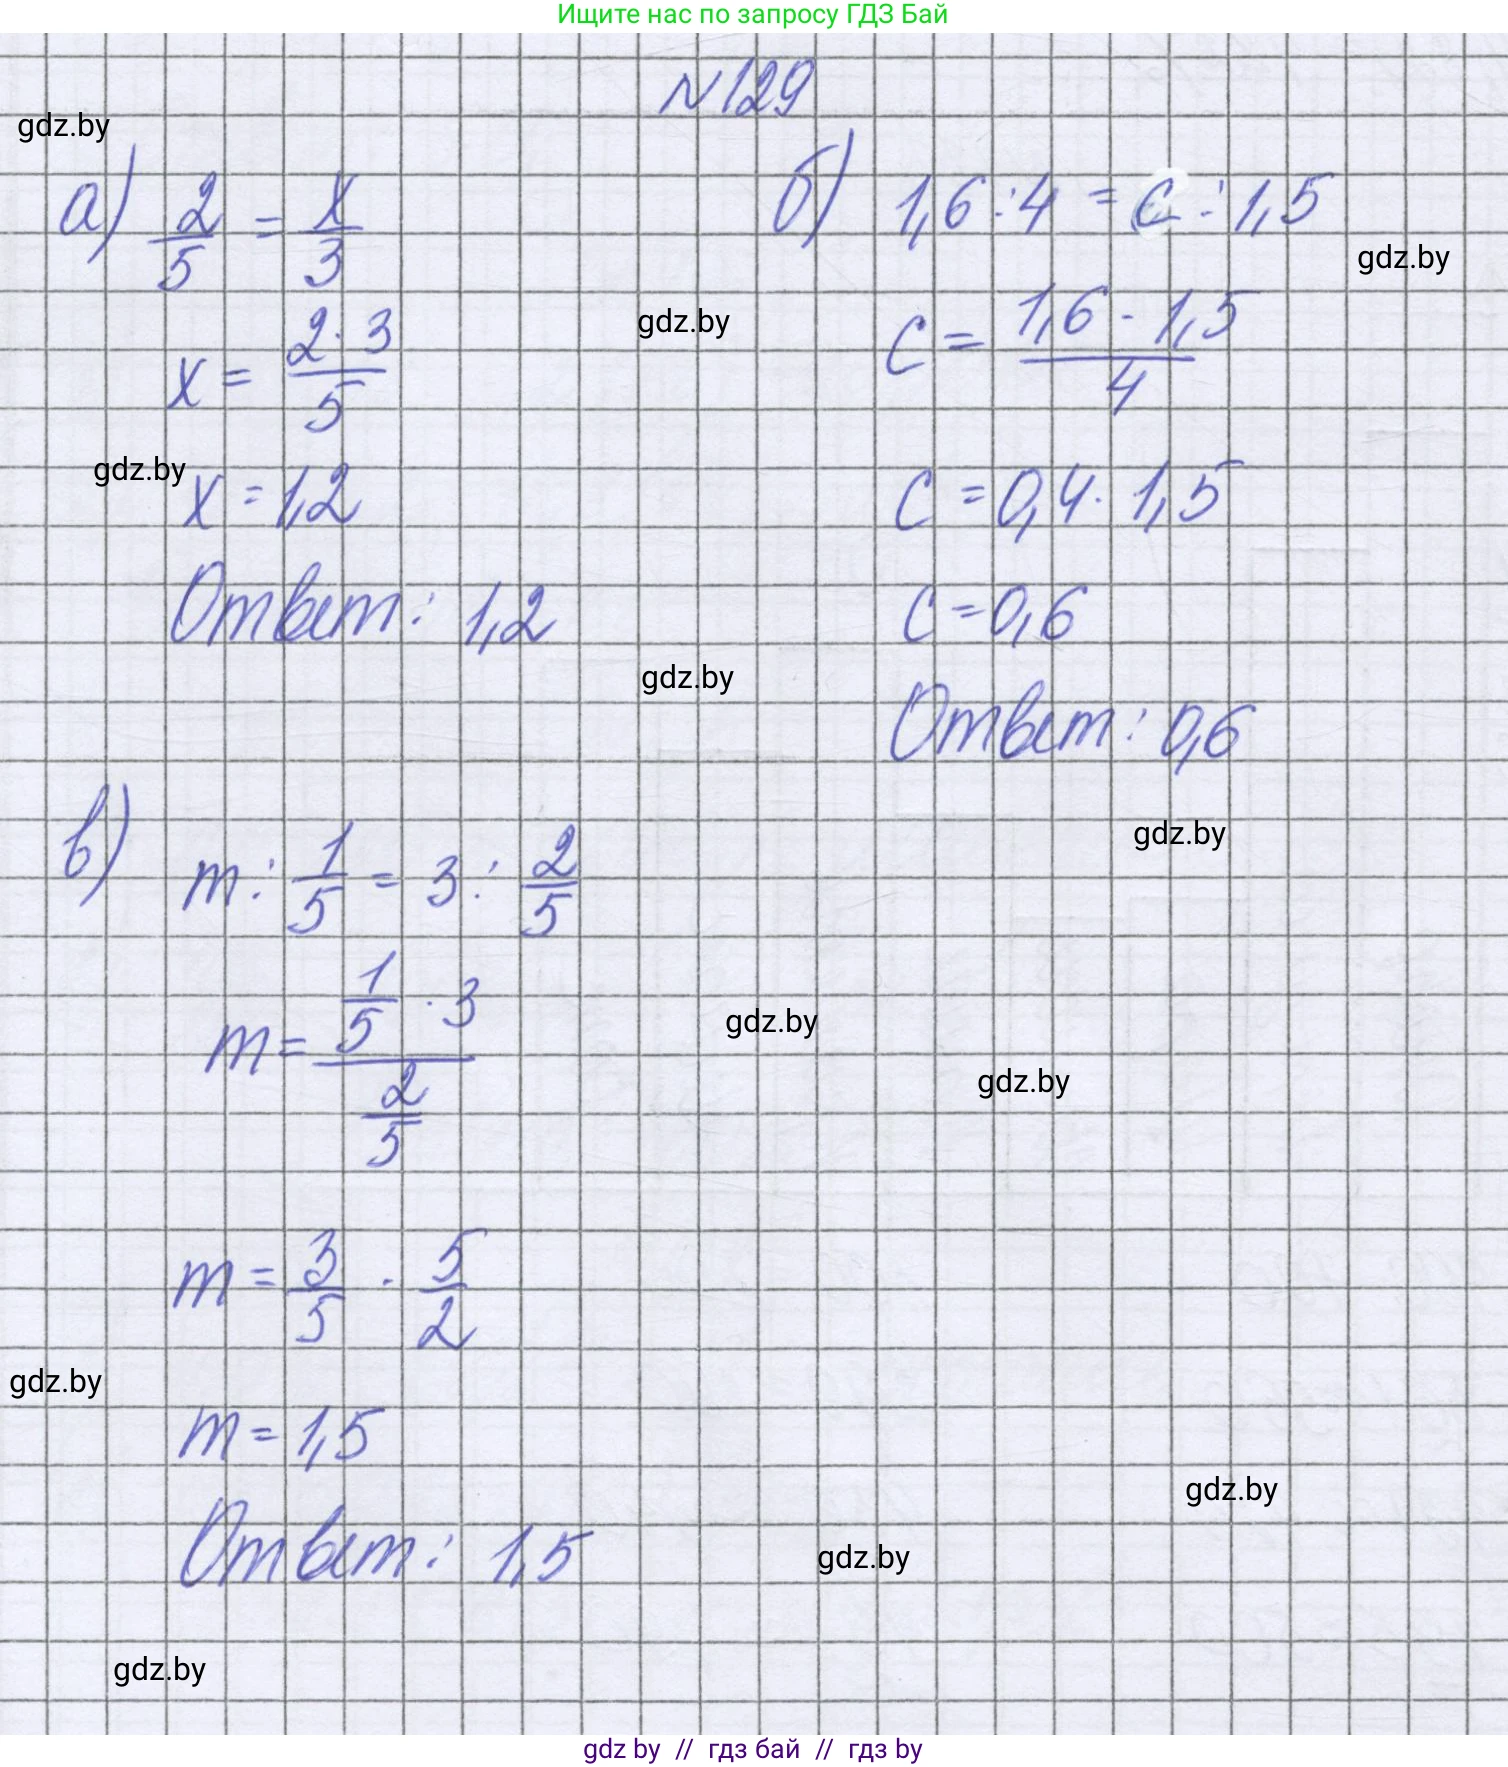 Ищите нас по запросу ГДЗ Бай
N129
gdz.by
а) 2/5 = x/3
x = 2·3/5
gdz.by
x = 1,2
Ответ: 1,2
б) 1,6 : 4 = c : 1,5
gdz.by
gdz.by
c = 1,6 · 1,5/4
c = 0,4 · 1,5
c = 0,6
gdz.by
Ответ: 0,6
gdz.by
в) m : 1/5 = 3 : 2/5
m = (1/5 · 3)/(2/5)
gdz.by
gdz.by
m = 3/5 · 5/2
gdz.by
m = 1,5
gdz.by
Ответ: 1,5
gdz.by
gdz.by
gdz by // гдз бай // гдз by